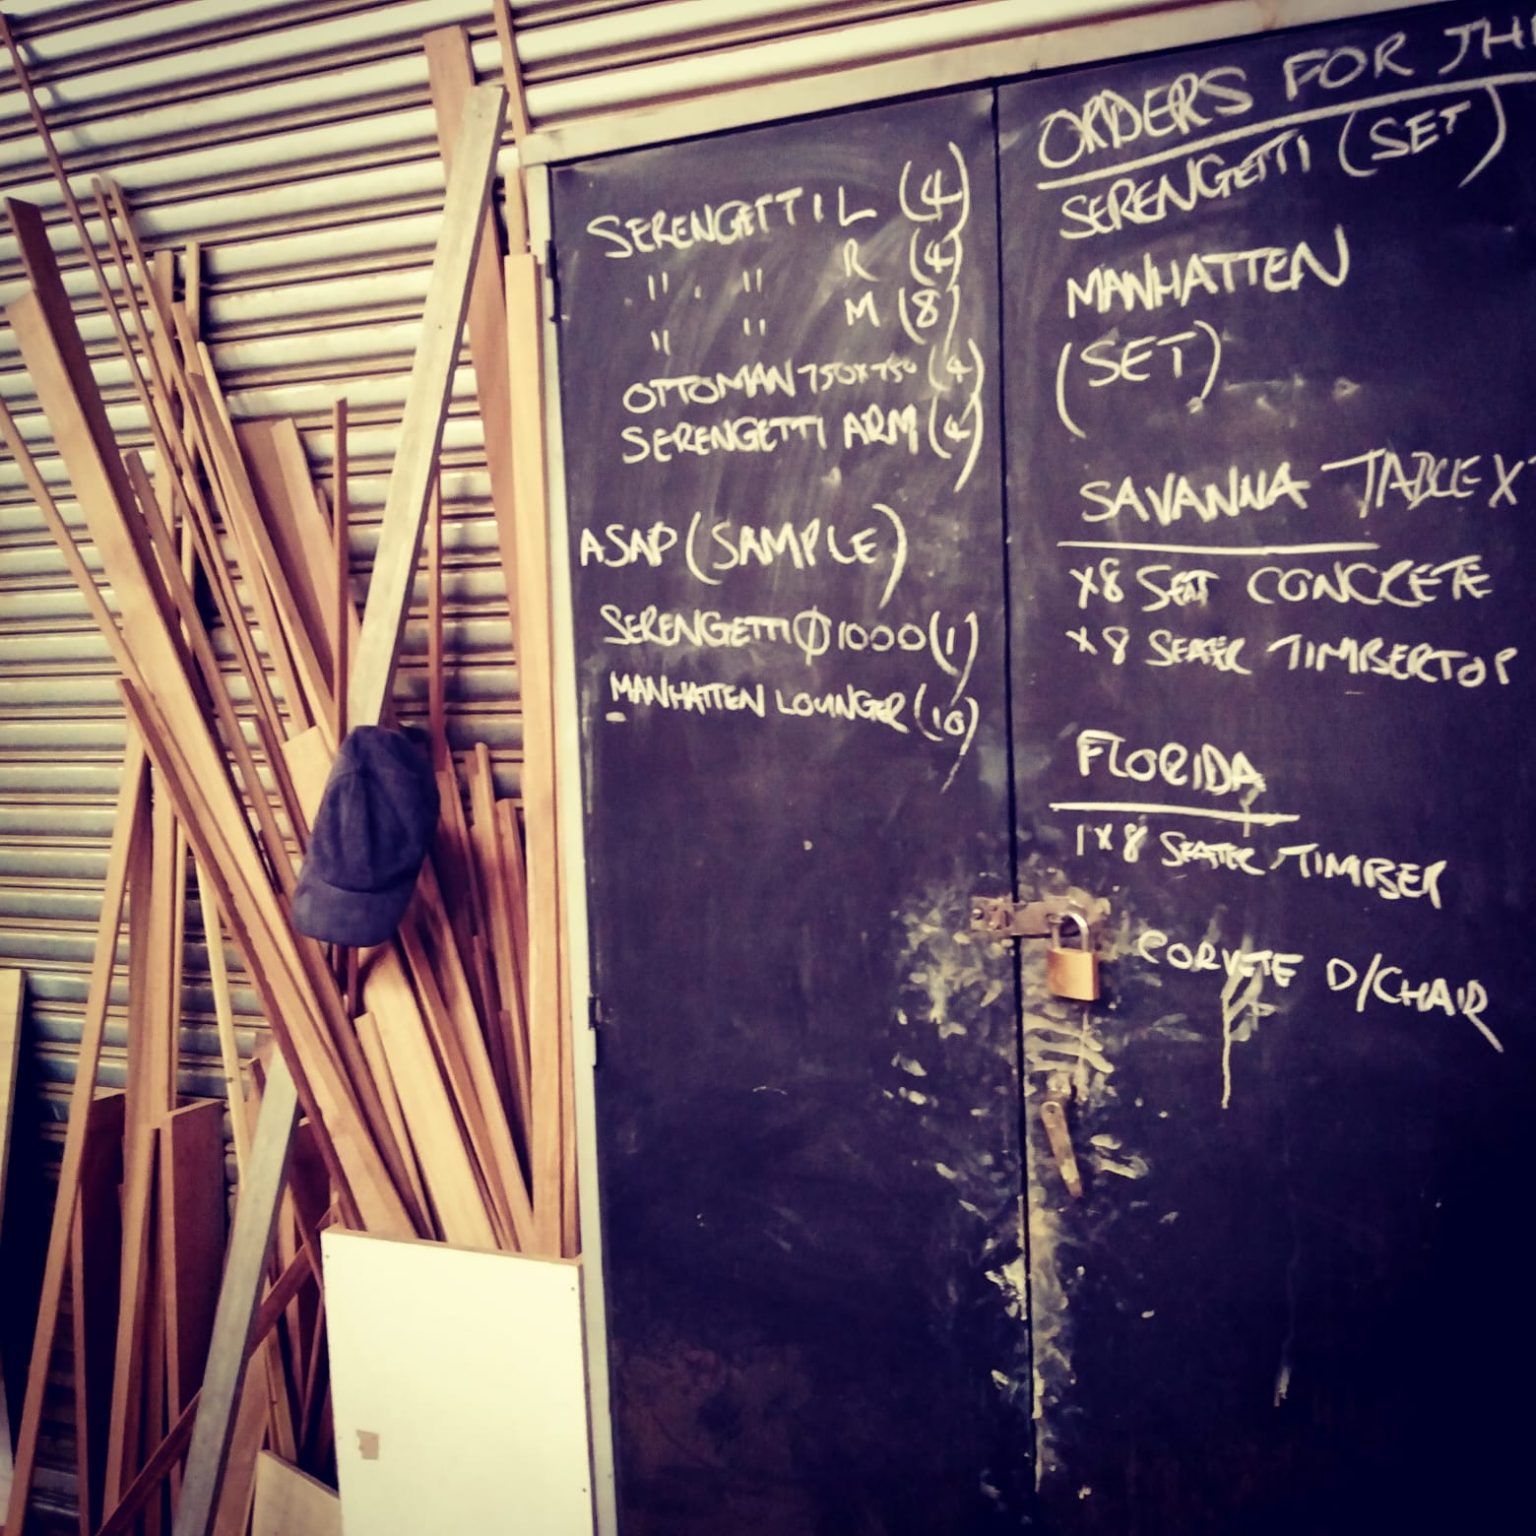 SERENGETTI L (4)
" " R (4)
" " M (8)
OTTOMAN 750x750 (4)
SERENGETTI ARM (4)
ASAP (SAMPLE)
SERENGETTI Ø 1000 (1)
MANHATTEN LOUNGER (10)
ORDERS FOR THI
SERENGETTI (SET)
MANHATTEN
(SET)
SAVANNA TABLE X
x8 SEAT CONCRETE
x8 SEATER TIMBERTOP
FLORIDA
1x8 SEATER TIMBER
CORVETE D/CHAIR